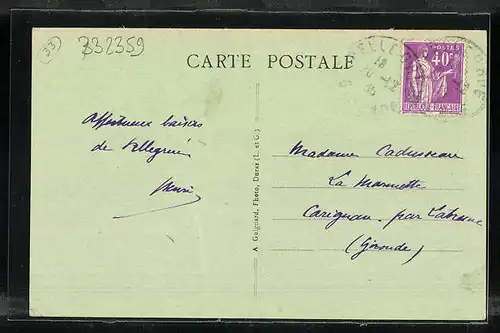 (33)
332359
CARTE POSTALE
POSTES
40c
REPUBLIQUE FRANÇAISE
Affectueux baisers
de Pellegrue
A. Guignard, Photo, Duras (L.-et-G.)
Madame
La
Carignan par Latresne
(Gironde)